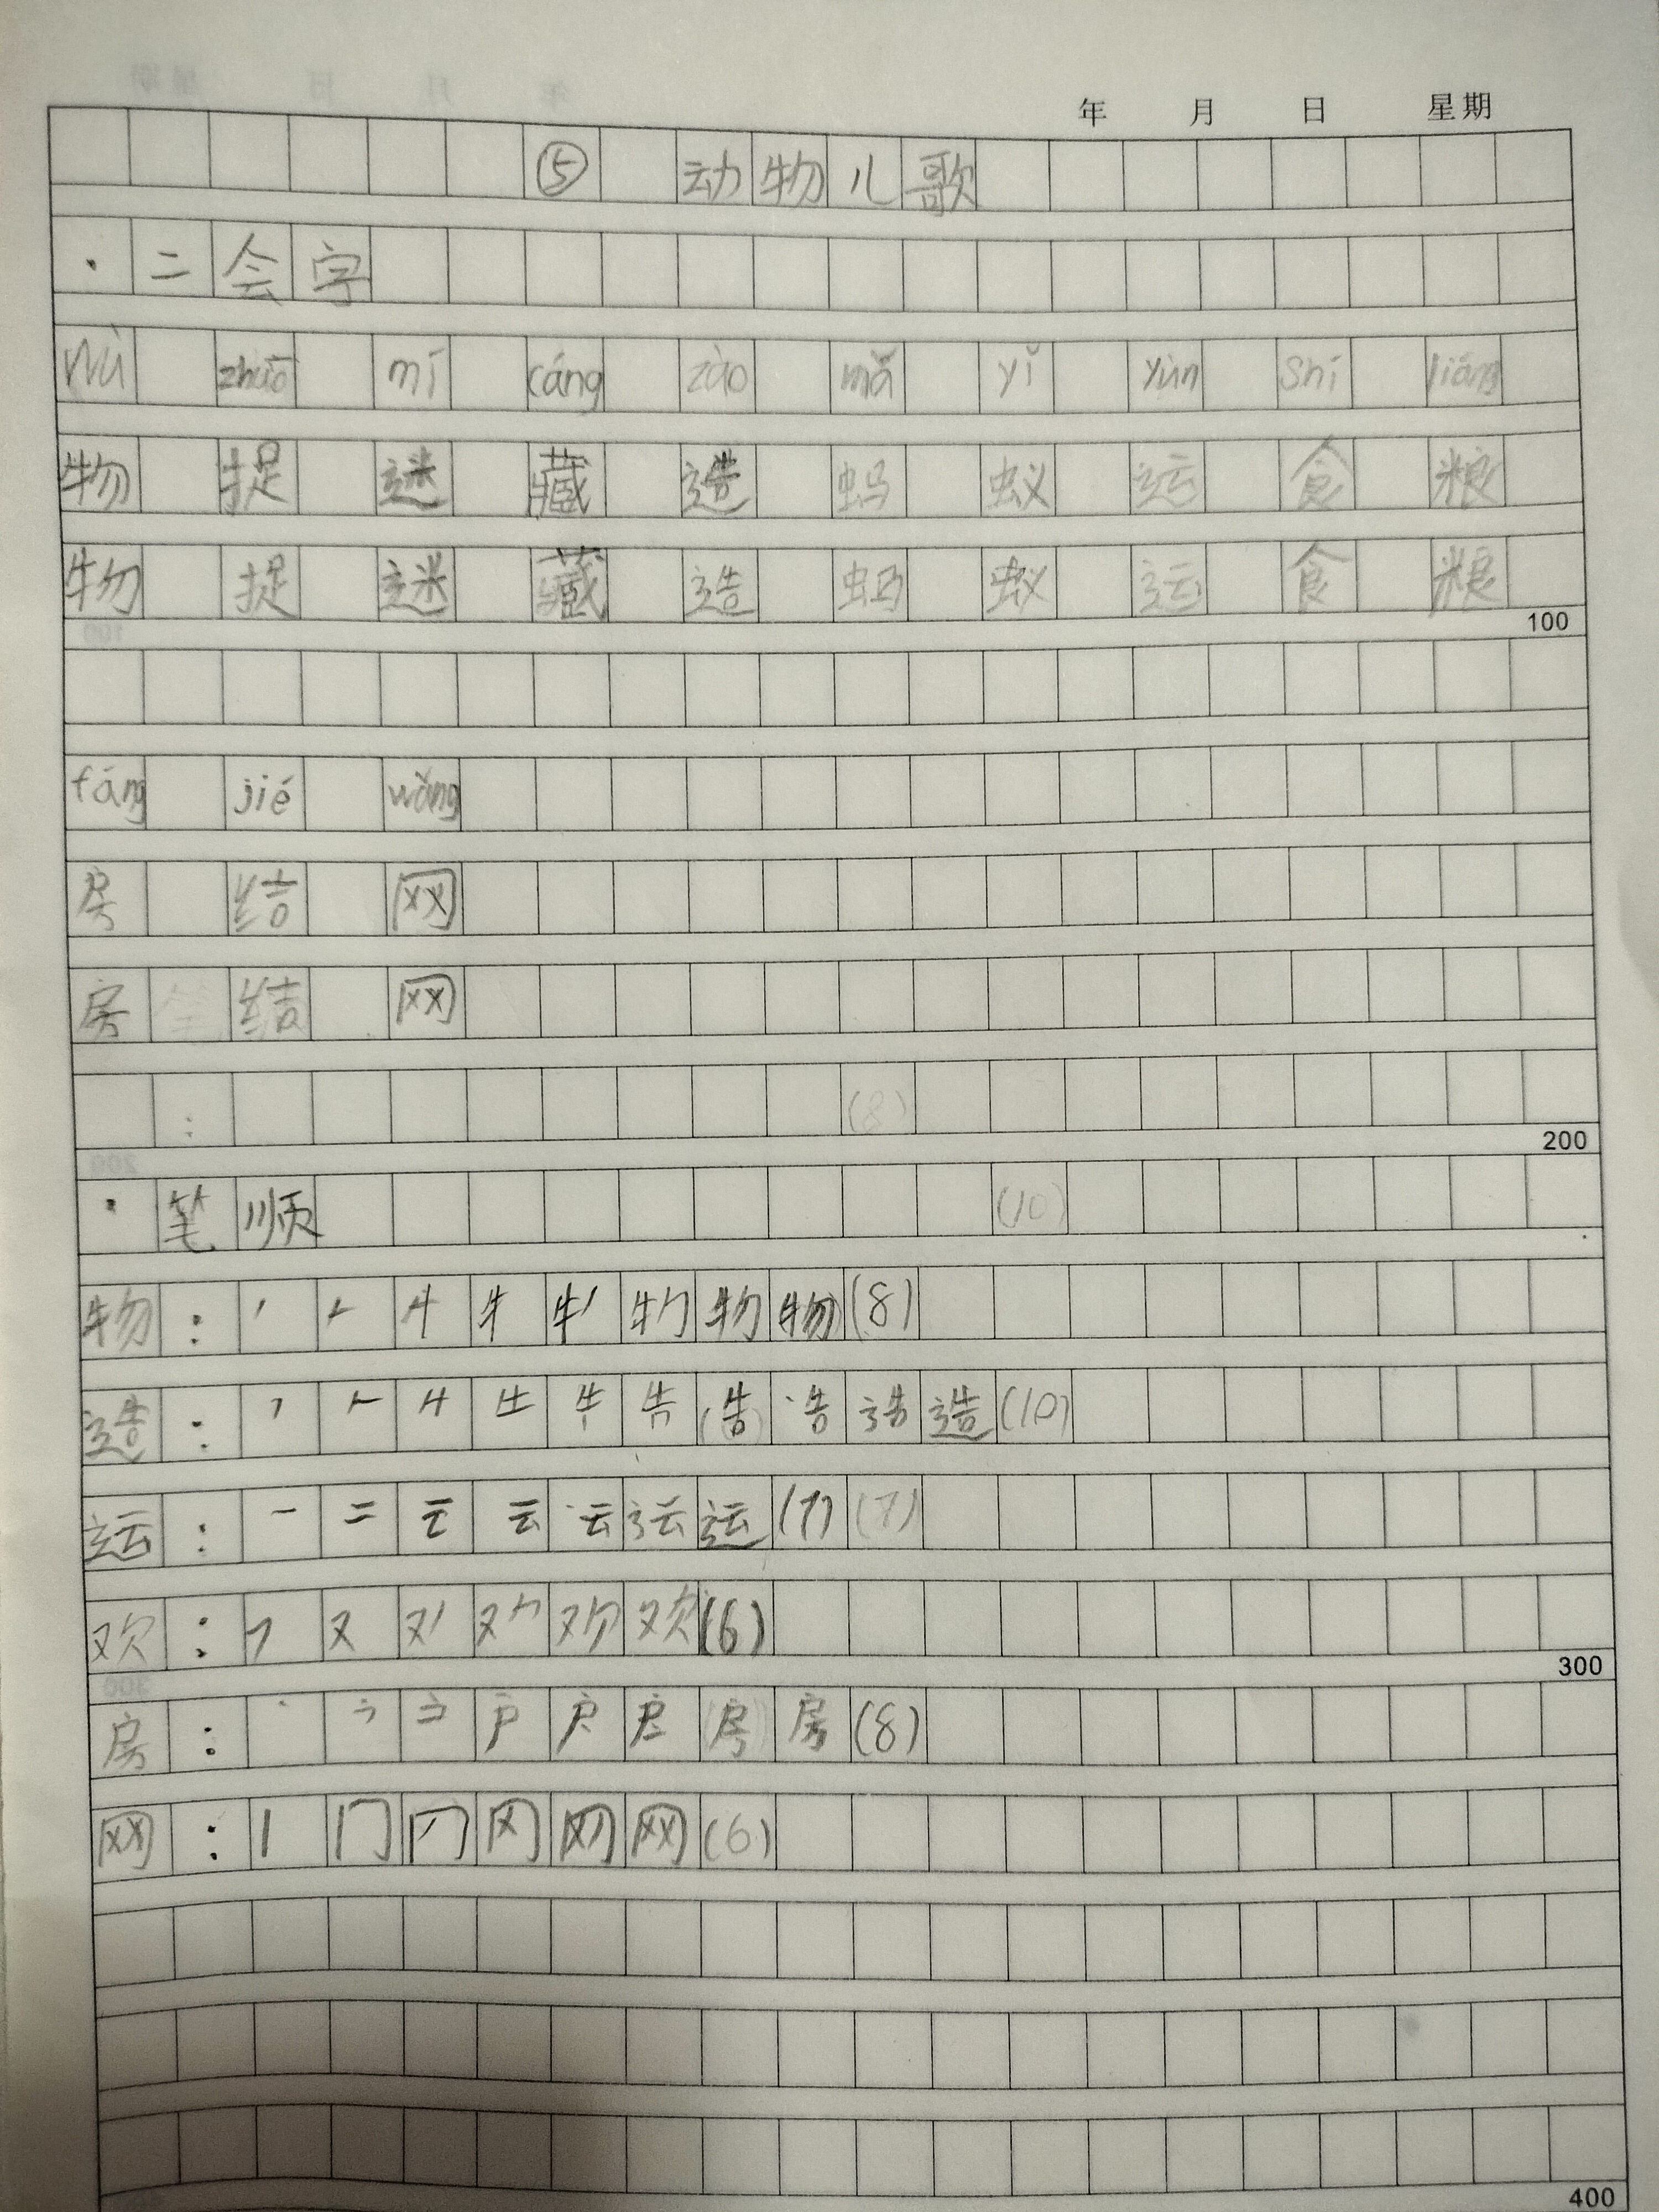 年 月 日 星期
⑤ 动物儿歌
· 二会字
wù zhuō mí cáng zào mǎ yǐ yùn shí liáng
物 捉 迷 藏 造 蚂 蚁 运 食 粮
物 捉 迷 藏 造 蚂 蚁 运 食 粮
100
fáng jié wǎng
房 结 网
房 结 网
: (8)
200
· 笔顺 (10)
物: 物 (8)
造: 告 造 (10)
运: 一 二 云 运 (7) (7)
欢: 又 欢 (6)
300
房: 户 房 (8)
网: 冂 冈 网 (6)
400